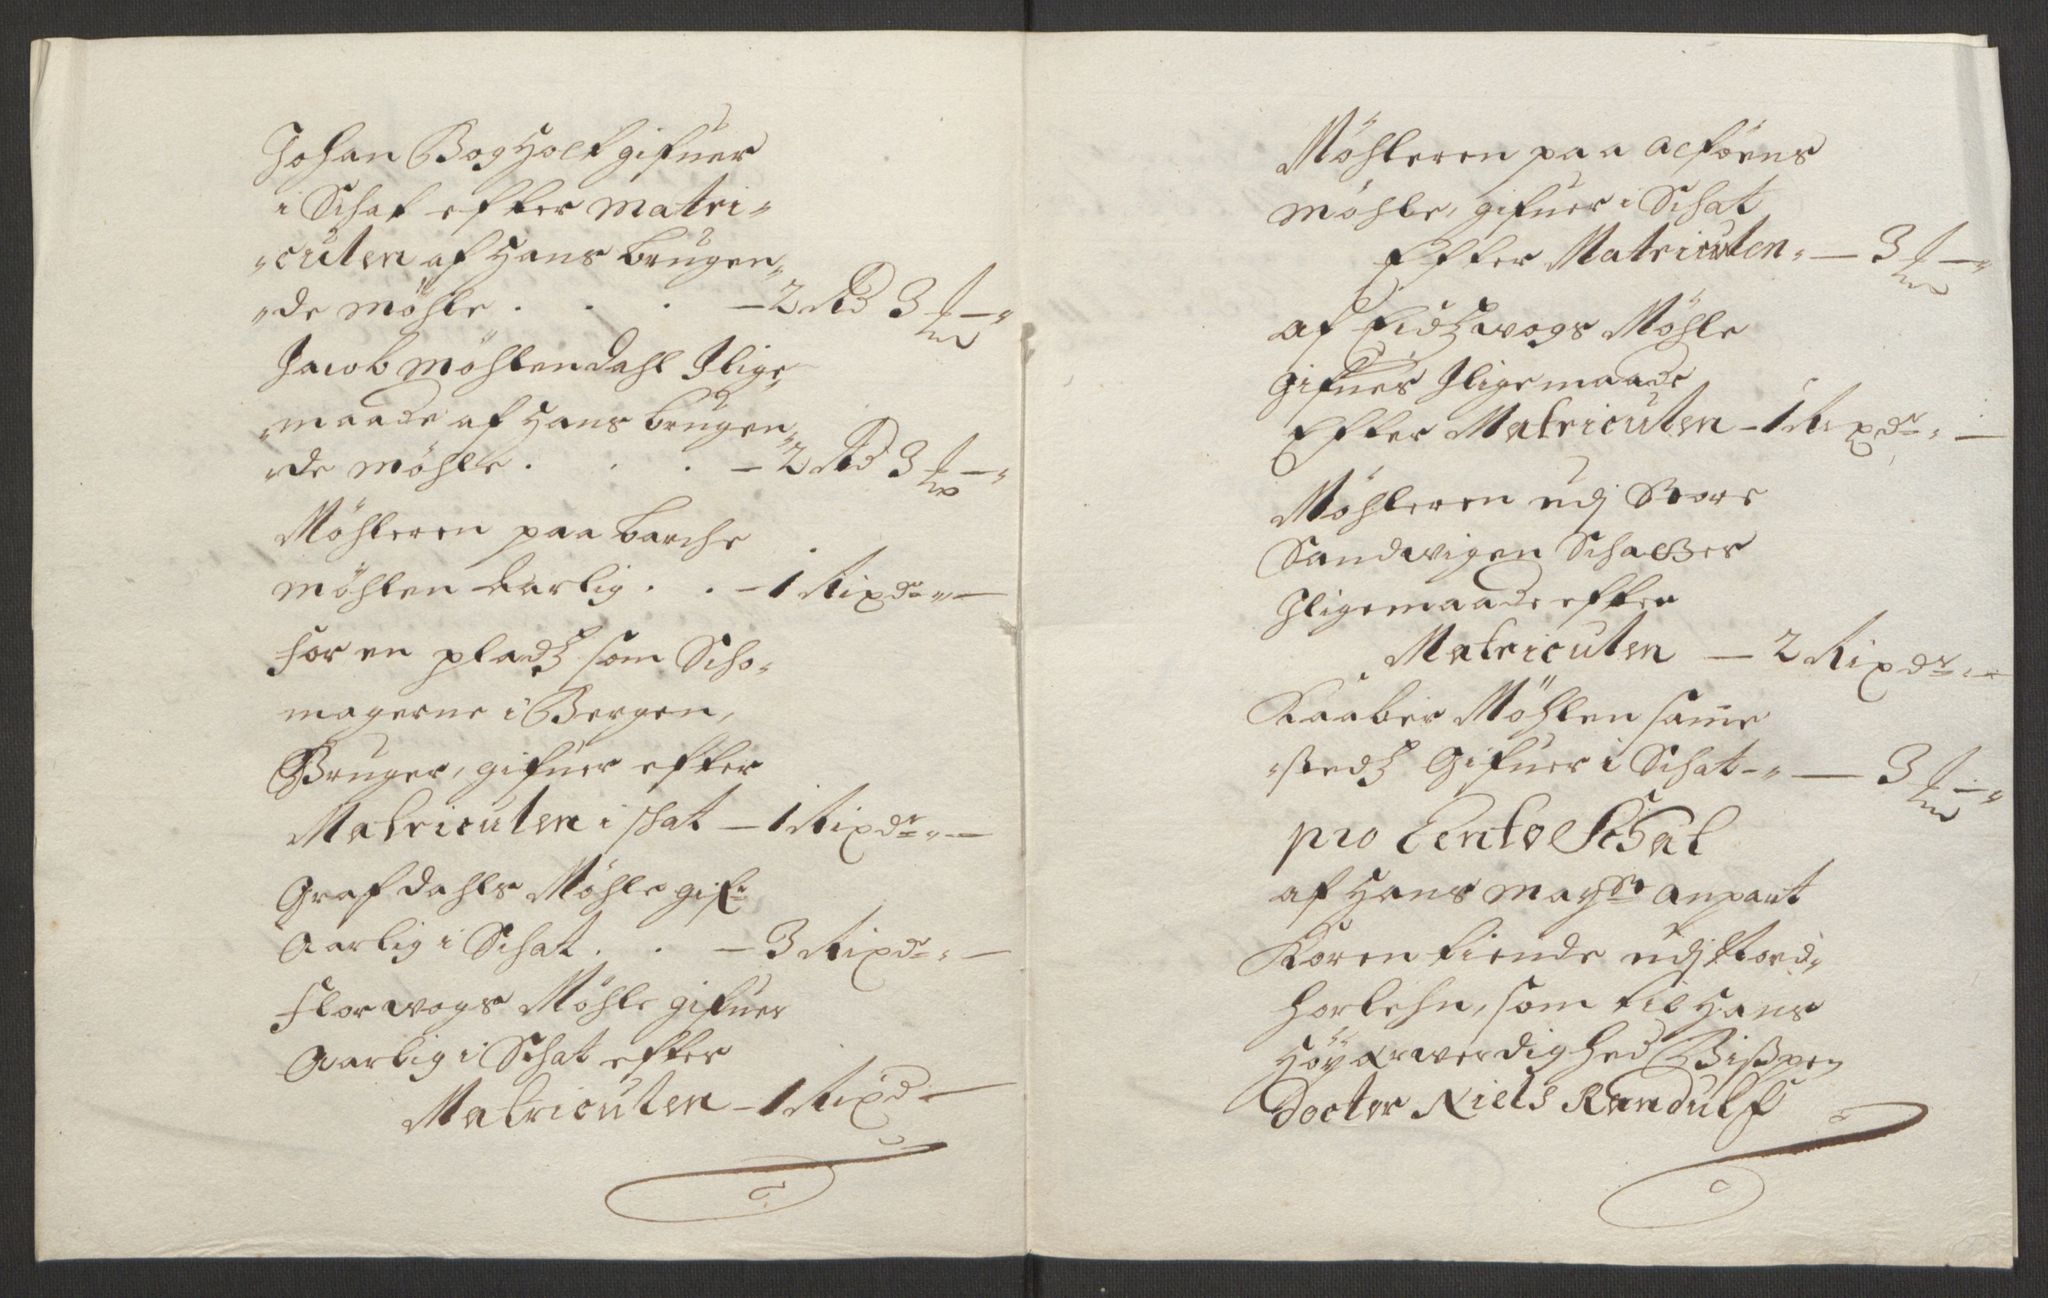 Johan Bogholt gifuer
i Schat efter Matri„
„culen af hans brugen„
„de Möhle . . . — 2 Rd 3 ₰ — „
Jacob Möhlendahl Ilige„
„maade af hans brugen„
„de Möhle . . . — 2 Rd 3 ₰ — „
Möhleren paa barche
Möhlen Aarlig . . — 1 Rixdr „ —
for en pladz som Scho„
magerne i Bergen,
Bruger, gifuer efter
Matriculen i schat — 1 Rixdr „ —
Grafdahls Möhle gifr
Aarlig i Schat . . — 3 Rixdr „ —
Florwogs Möhle gifuer
Aarlig i Schat efter
Matriculen — 1 Rixd —
Möhleren paa Alföens
Möhle, gifuer i Schat
Efter Matriculen „ — 3 ₰ — „
af Eidzwogs Möhle
gifues Iligemaade
Efter Matriculen — 1 Rixdr „ —
Möhleren udj Store
Sandwigen Schalßer
Iligemaade efter
Matriculen — 2 Rixdr „ —
Kaaber Möhlen same
„stedz Gifuer i Schat „ — 3 ₰ — „
pro Cento Schat
af Hans Maysts anpart
Koren tiende udj Nord„
horlehn, som til Hans
Höyærwerdighed Bispen
Docter Niels Randulf